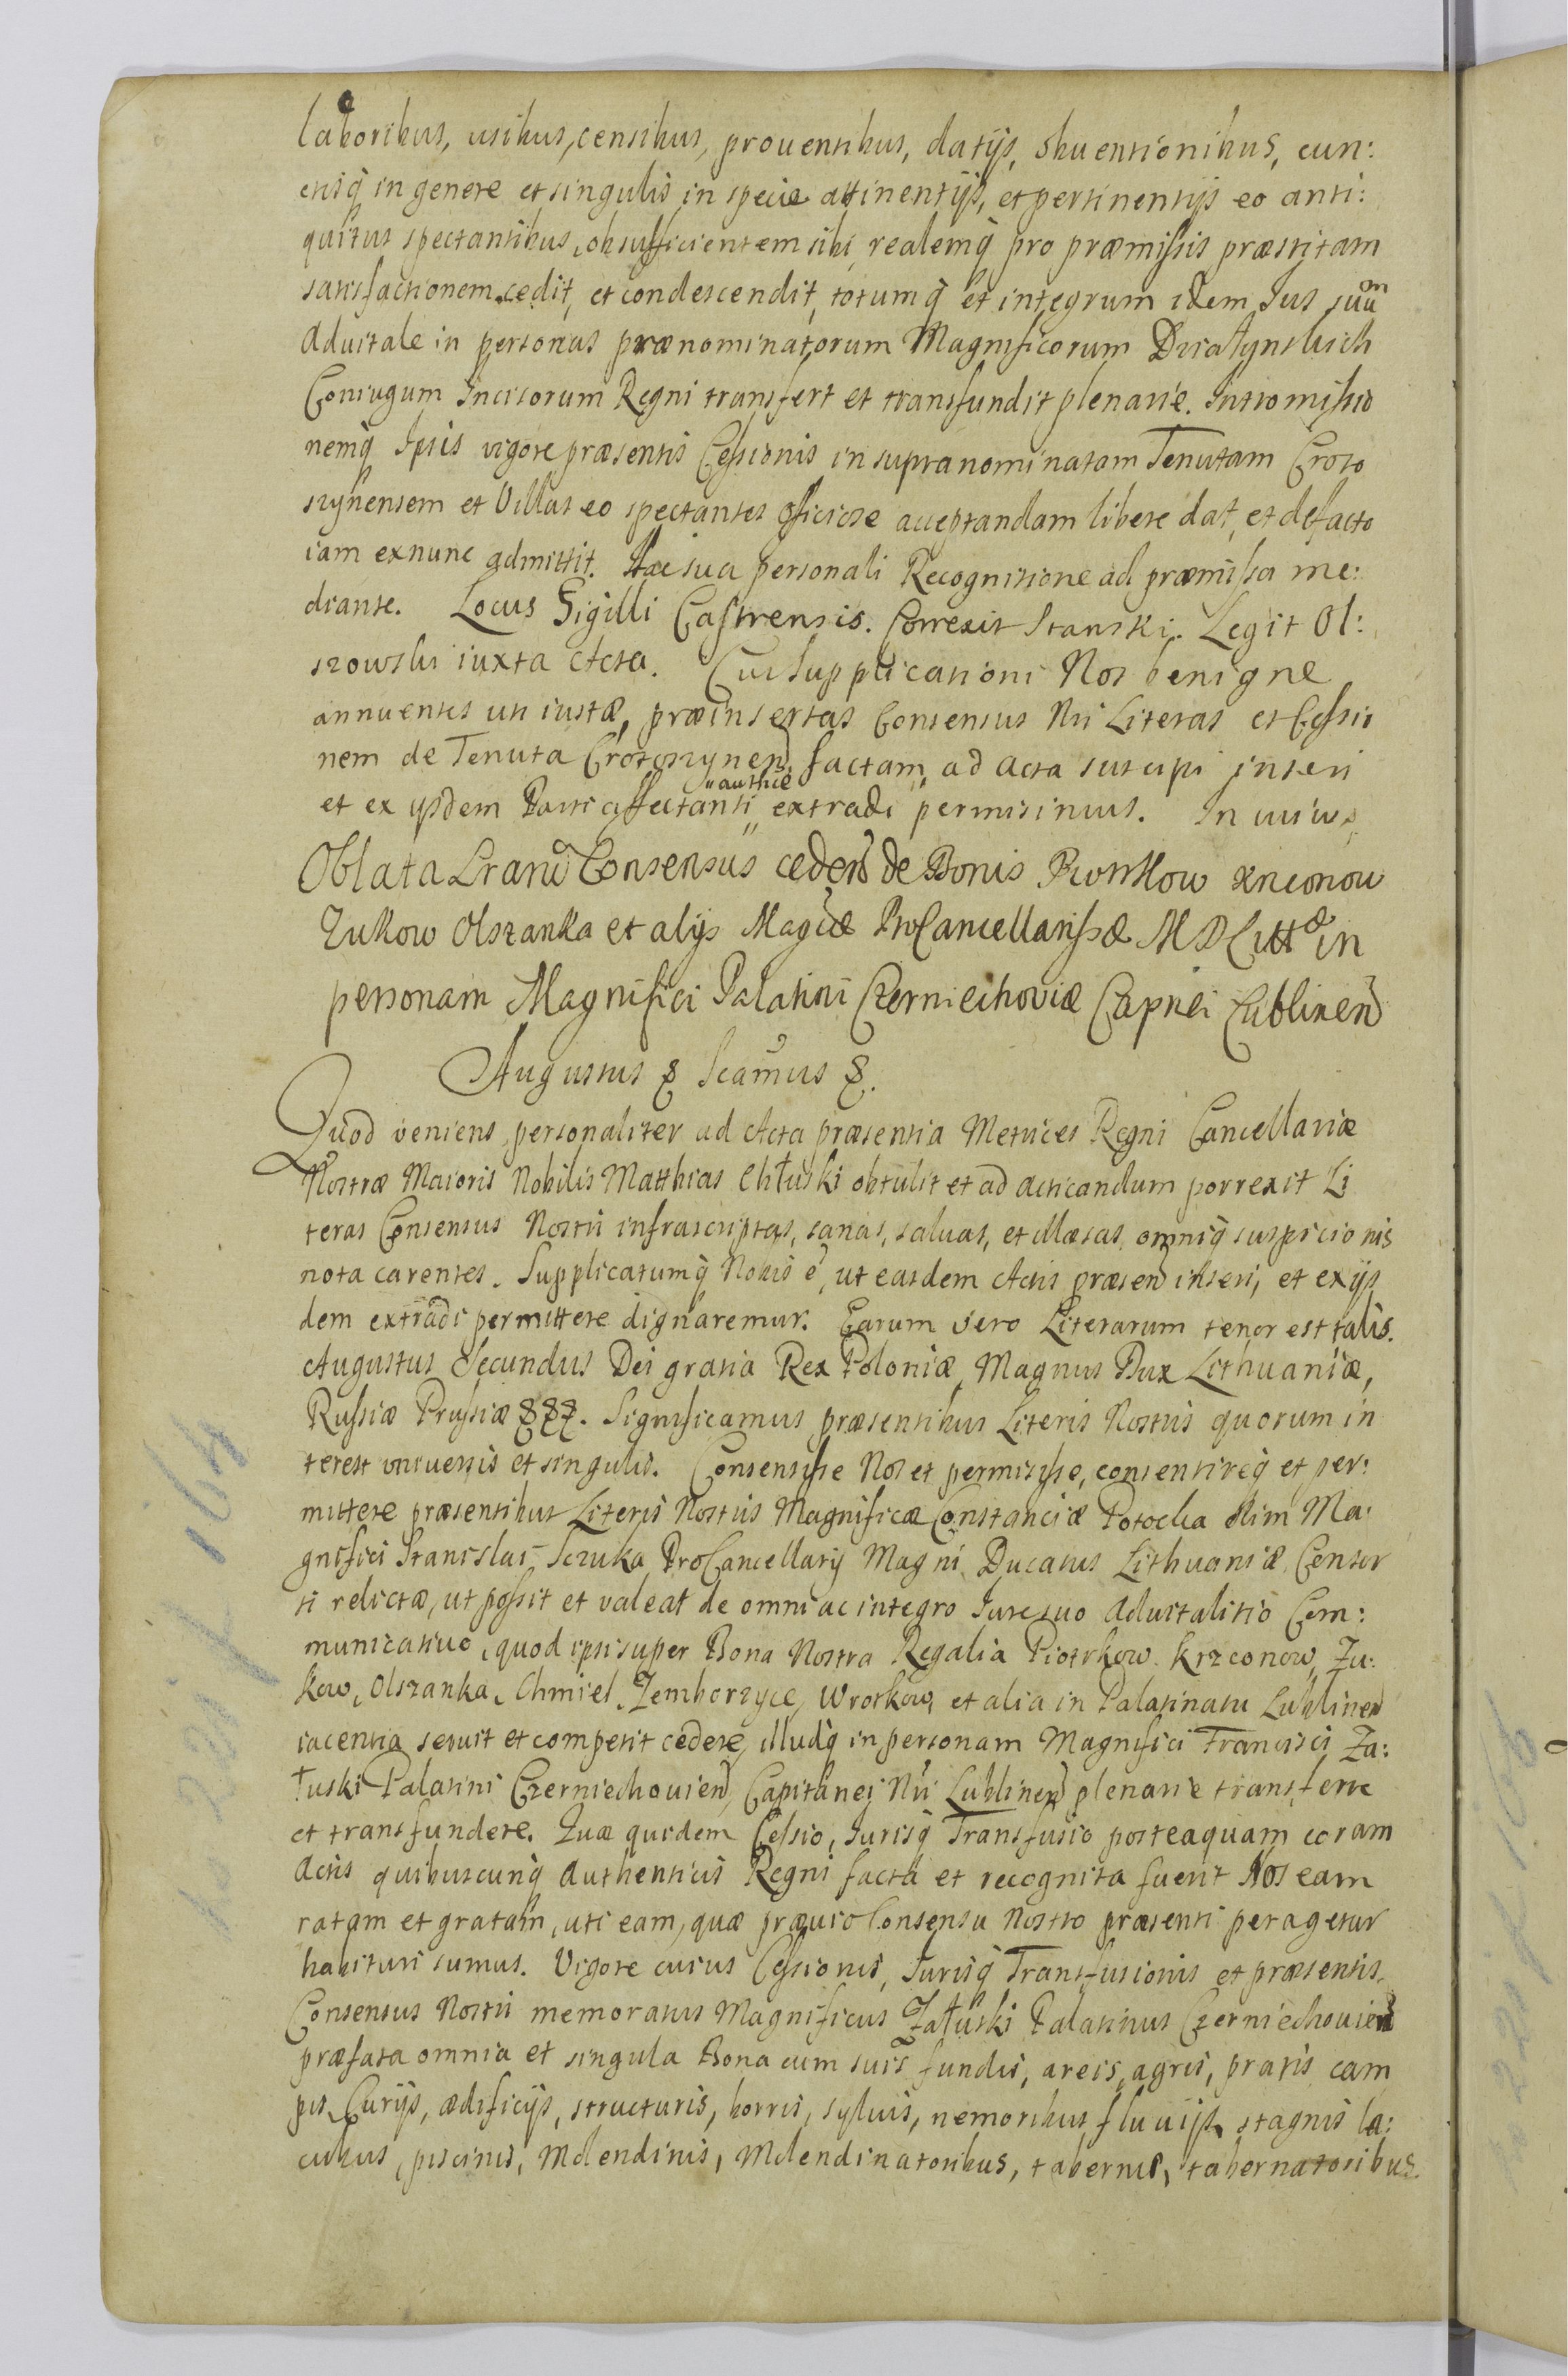 laboribus, usibus, censibus, prouentibus, datijs, obuentionibus, cun:
ctisq̃ in genere et singulis in specie attinentijs, et pertinentijs eo anti:
quitus spectantibus, ob sufficientem sibi, realemq̃ pro præmissis præstitam
satisfactionem cedit, et condescendit, totumq̃ et integrum idem Jus suũm
Aduitale in personas prænominatorum Magnificorum
Coniugum Incisorum Regni transfert et transfundit plenarie. Intromissio
nemq̃ Ipsis vigore præsentis Cessionis in supranominatam Tenutam Croto
szynensem et Villas eo spectantes officiose acceptandam libere dat, et defacto
iam exnunc admittit. Hac sua personali Recognitione ad præmissa me:
diante. Locus Sigilli Castrensis. Correxit Stanski. Legit Ol:
szowski iuxta Acta. Cui Supplicationi Nos benigne
annuentes uti iustæ, præinsertas Consensus Nri Literas et Cessio
nem de Tenuta Crotoszynen̄ factam, ad Acta suscipi inseri
et ex ijsdem Parti affectanti "authce" extradi permisimus. In cuius
Oblata Lrarũ Consensus ceden̄ de Bonis Piotrkow Krzconow
Zukow Olszanka et alijs Magcæ ProCancellarissæ M D Littæ in
personam Magnifici Palatini Czerniechoviæ Capnei Lublinen̄
Augustus & Scamus &.
Quod veniens personaliter ad Acta præsentia Metrices Regni Cancellariæ
Nostræ Maioris Nobilis Matthias Chłuski obtulit et ad acticandum porrexit Li
teras Consensus Nostri infrascriptas, sanas, saluas, et illæsas, omniq̃ suspicionis
nota carentes. Supplicatumq̃ Nobis ẽ, ut easdem Actis præsen̄ inseri, et ex ijs
dem extradi permittere dignaremur. Earum vero Literarum tenor est talis.
Augustus Secundus Dei gratia Rex Poloniæ, Magnus Dux Lithuaniæ,
Russiæ Prussiæ &&&. Significamus præsentibus Literis Nostris quorum in
terest vniuersis et singulis. Consensisse Nos et permisisse, consentireq̃ et per:
mittere præsentibus Literis Nostris Magnificæ Constanciæ Potocka olim Ma:
gnifici Stanislai Sczuka ProCancellarij Magni Ducatus Lithuaniæ Consor
ti relictæ, ut possit et valeat de omni ac integro Jure suo Aduitalitio Com:
municatiuo, quod ipsi super Bona Nostra Regalia Piotrkow Krzconow, Zu:
kow, Olszanka, Chmiel, Zemborzyce, Wrotkow, et alia in Palatinatu Lublinen̄
iacentia seruit et competit cedere, illudq̃ in personam Magnifici Francisci Za:
łuski Palatini Czerniechouien̄, Capitanei Nri Lublinen̄ plenarie transferre
et transfundere. Quæ quidem Cessio, Jurisq̃ Transfusio posteaquam coram
Actis quibuscunq̃ Authenticis Regni facta et recognita fuerit Nos eam
ratam et gratam, uti eam, quæ præuio Consensu Nostro præsenti peragetur
habituri sumus. Vigore cuius Cessionis, Jurisq̃ Transfusionis et præsentis
Consensus Nostri memoratus Magnificus Załuski Palatinus Czerniechouien̄
præfata omnia et singula Bona cum suis fundis, areis, agris, pratis cam
pis Curijs, ædificijs, structuris, horris, syluis, nemoribus fluuijs, stagnis la:
cubus, piscinis, Molendinis, Molendinatoribus, tabernis, tabernatoribus